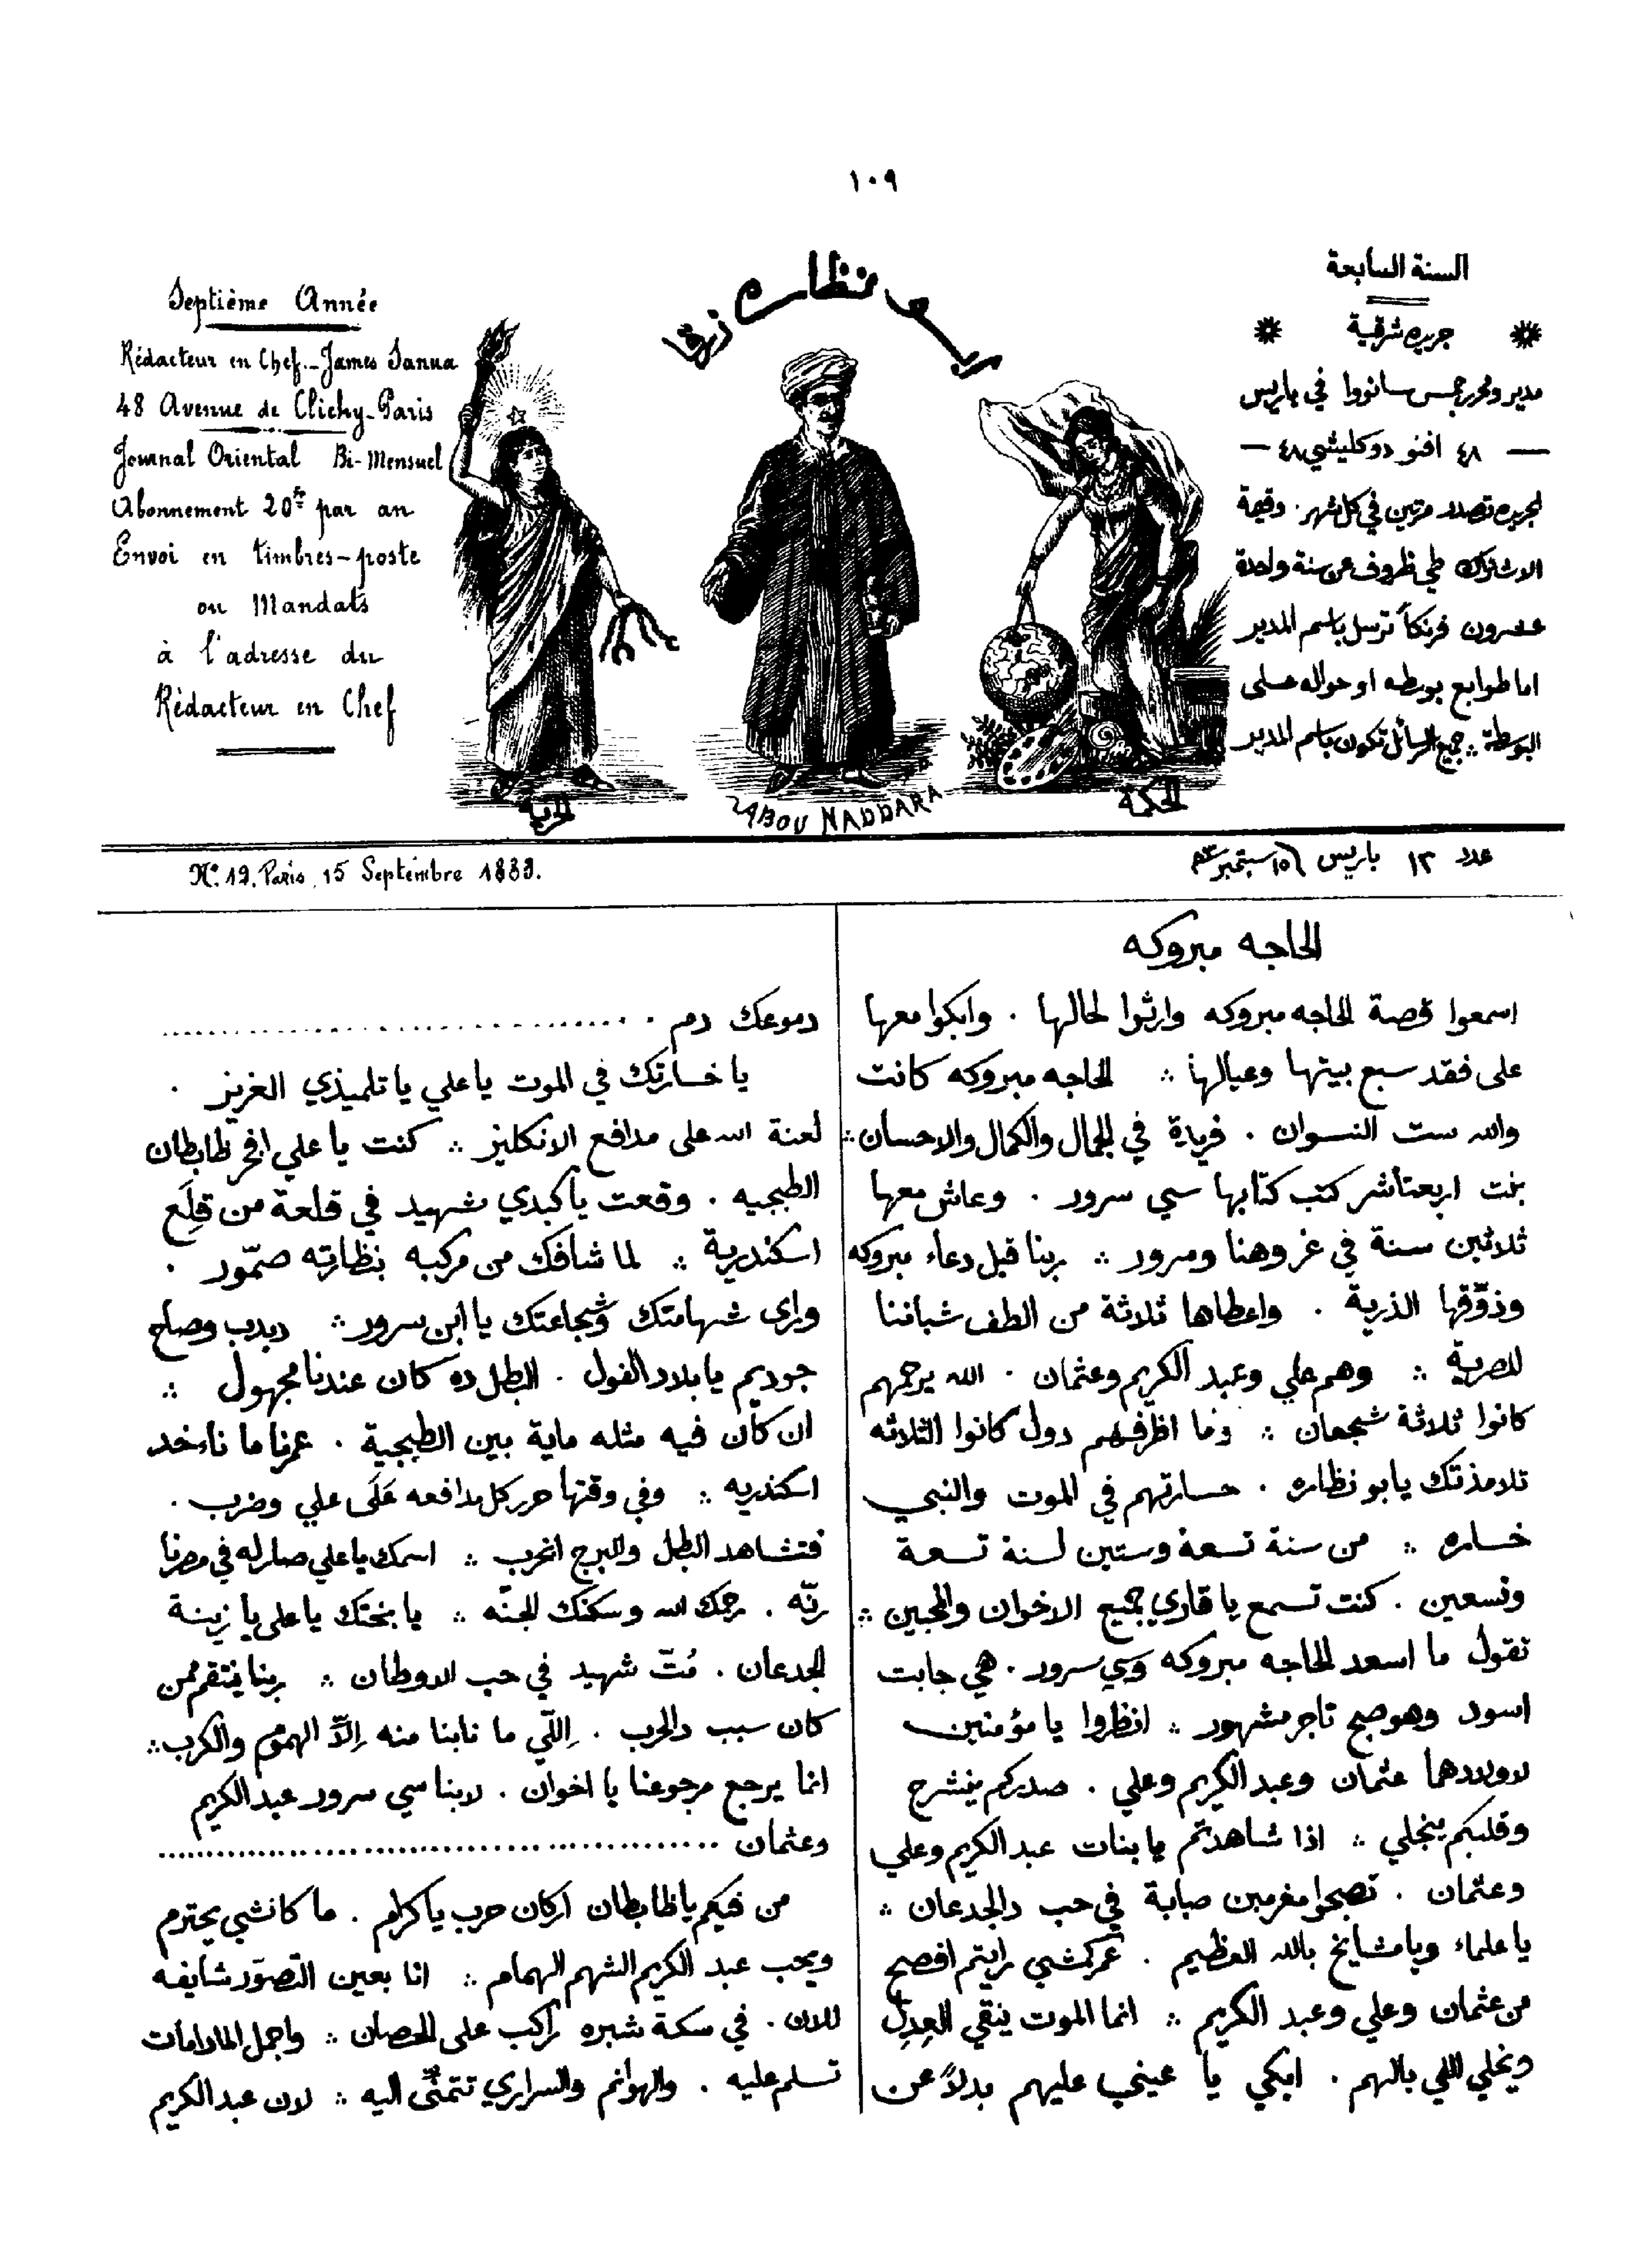 ١٠٩
ابو نظاره زرقا
السنة السابعة
جريده شرقية
مدير ومحرر جمس سانووا في باريس
— ٤٨ افنو دو كليشي ٤٨ —
الجريده تصدر مرتين في كل شهر . وقيمة
الاشتراك طي ظروف عن سنة واحدة
عشرون فرنكاً ترسل باسم المدير
اما طوابع بوسطه او حواله على
البوسطة ∴ جميع الرسائل تكون باسم المدير
Septième Année
Rédacteur en Chef.- James Sanua
48 Avenue de Clichy-Paris
Journal Oriental Bi-Mensuel
Abonnement 20 fr par an
Envoi en timbres-poste
ou Mandats
à l'adresse du
Rédacteur en Chef
الحرية
ABOU NADDARA
الحكمة
عدد ١٢ باريس ١٥ سبتمبر ٨٣
No. 12. Paris, 15 Septembre 1883.
الحاجه مبروكه
اسمعوا قصة الحاجه مبروكه وارثوا لحالها . وابكوا معها
على فقد سبع بيتها وعيالها ∴ الحاجه مبروكه كانت
والله ست النسوان . فريدة في الجمال والكمال والاحسان ∴
بنت اربعتاشر كتب كتابها سي سرور . وعاش معها
ثلاثين سنة في عز وهنا وسرور ∴ ربنا قبل دعاء مبروكه
وذوّقها الذرية . واعطاها ثلاثة من الطف شباننا
المصرية ∴ وهم علي وعبد الكريم وعثمان . الله يرحمهم
كانوا ثلاثة شجعان ∴ وما اظرفهم دول كانوا الثلاثه
تلامذتك يابو نظاره . خسارتهم في الموت والنبي
خساره ∴ من سنة تسعة وستين لسنة تسعة
وتسعين . كنت تسمع يا قاري جميع الاخوان والمحبين ∴
تقول ما اسعد الحاجه مبروكه وسي سرور . هي جابت
اسود وهو صبح تاجر مشهور ∴ انظروا يا مؤمنين
لاولادهما عثمان وعبد الكريم وعلي . صدركم ينشرح
وقلبكم ينجلي ∴ اذا شاهدتم يا بنات عبد الكريم وعلي
وعثمان . تصبحوا مغرمين صبابة في حب دالجدعان ∴
يا علماء ويا مشايخ بالله العظيم . عمركمشي رايتم افصح
من عثمان وعلي وعبد الكريم ∴ انما الموت ينقي العِدِل
ويخلي اللي بالهم . ابكي يا عيني عليهم بدلاً عن
دموعك دم . ........................................
يا خسارتك في الموت يا علي يا تلميذي العزيز .
لعنة الله على مدافع الانكليز ∴ كنت يا علي افخر ظابطان
الطبجيه . وقعت يا كبدي شهيد في قلعة من قِلَع
اسكندرية ∴ لما شافك من مركبه بنظارته صمّور .
وراى شهامتك وشجاعتك يا ابن سرور ∴ دبدب وصاح
جوديم يا بلاد الفول . البطل ده كان عندنا مجهول ∴
ان كان فيه مثله ماية بين الطبجية . عمرنا ما ناءخد
اسكندريه ∴ وفي وقتها حرر كل مدافعه عَلَى علي وضرب .
فتشاهد البطل والبرج انخرب ∴ اسمك يا علي صار له في مصرنا
رنّه . رحمك الله وسكنك الجنّه ∴ يا بختك يا علي يا زينة
الجدعان . مُتّ شهيد في حب الاوطان ∴ ربنا ينتقم ممن
كان سبب دالحرب . اِللّي ما نابنا منه اِلاّ الهموم والكرب ∴
انما يرجع مرجوعنا يا اخوان . لابنا سي سرور عبد الكريم
وعثمان ........................................
من فيكم يا ظابطان اركان حرب يا كرام . ما كانشي يحترم
ويحب عبد الكريم الشهم الهمام ∴ انا بعين التصوّر شايفه
للان . في سكة شبره راكب على الحصان ∴ واجمل المادامات
تسلم عليه . والهوانم والسراري تتمنّى اليه ∴ لان عبد الكريم